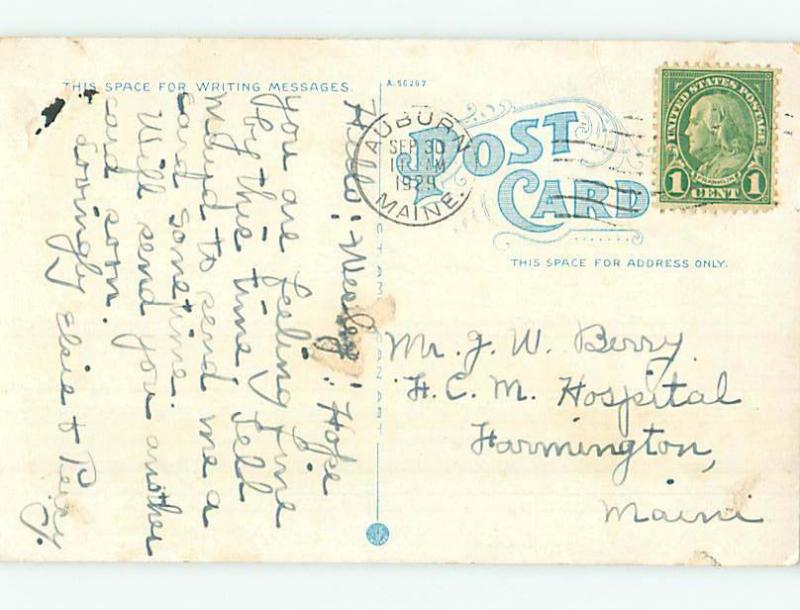 THIS SPACE FOR WRITING MESSAGES.
A-56267
POST
CARD
THIS SPACE FOR ADDRESS ONLY.
AUBURN
SEP 30
AM
1929
MAINE.
UNITED STATES POSTAGE
FRANKLIN
1 CENT 1
Hello! Wesley! Hope
you are feeling fine
by this time. Tell
to send me a
card sometime.
Will send you another
card soon.
Lovingly Elsie & Percy
Mr. J. W. Berry
F. C. M. Hospital
Farmington,
Maine